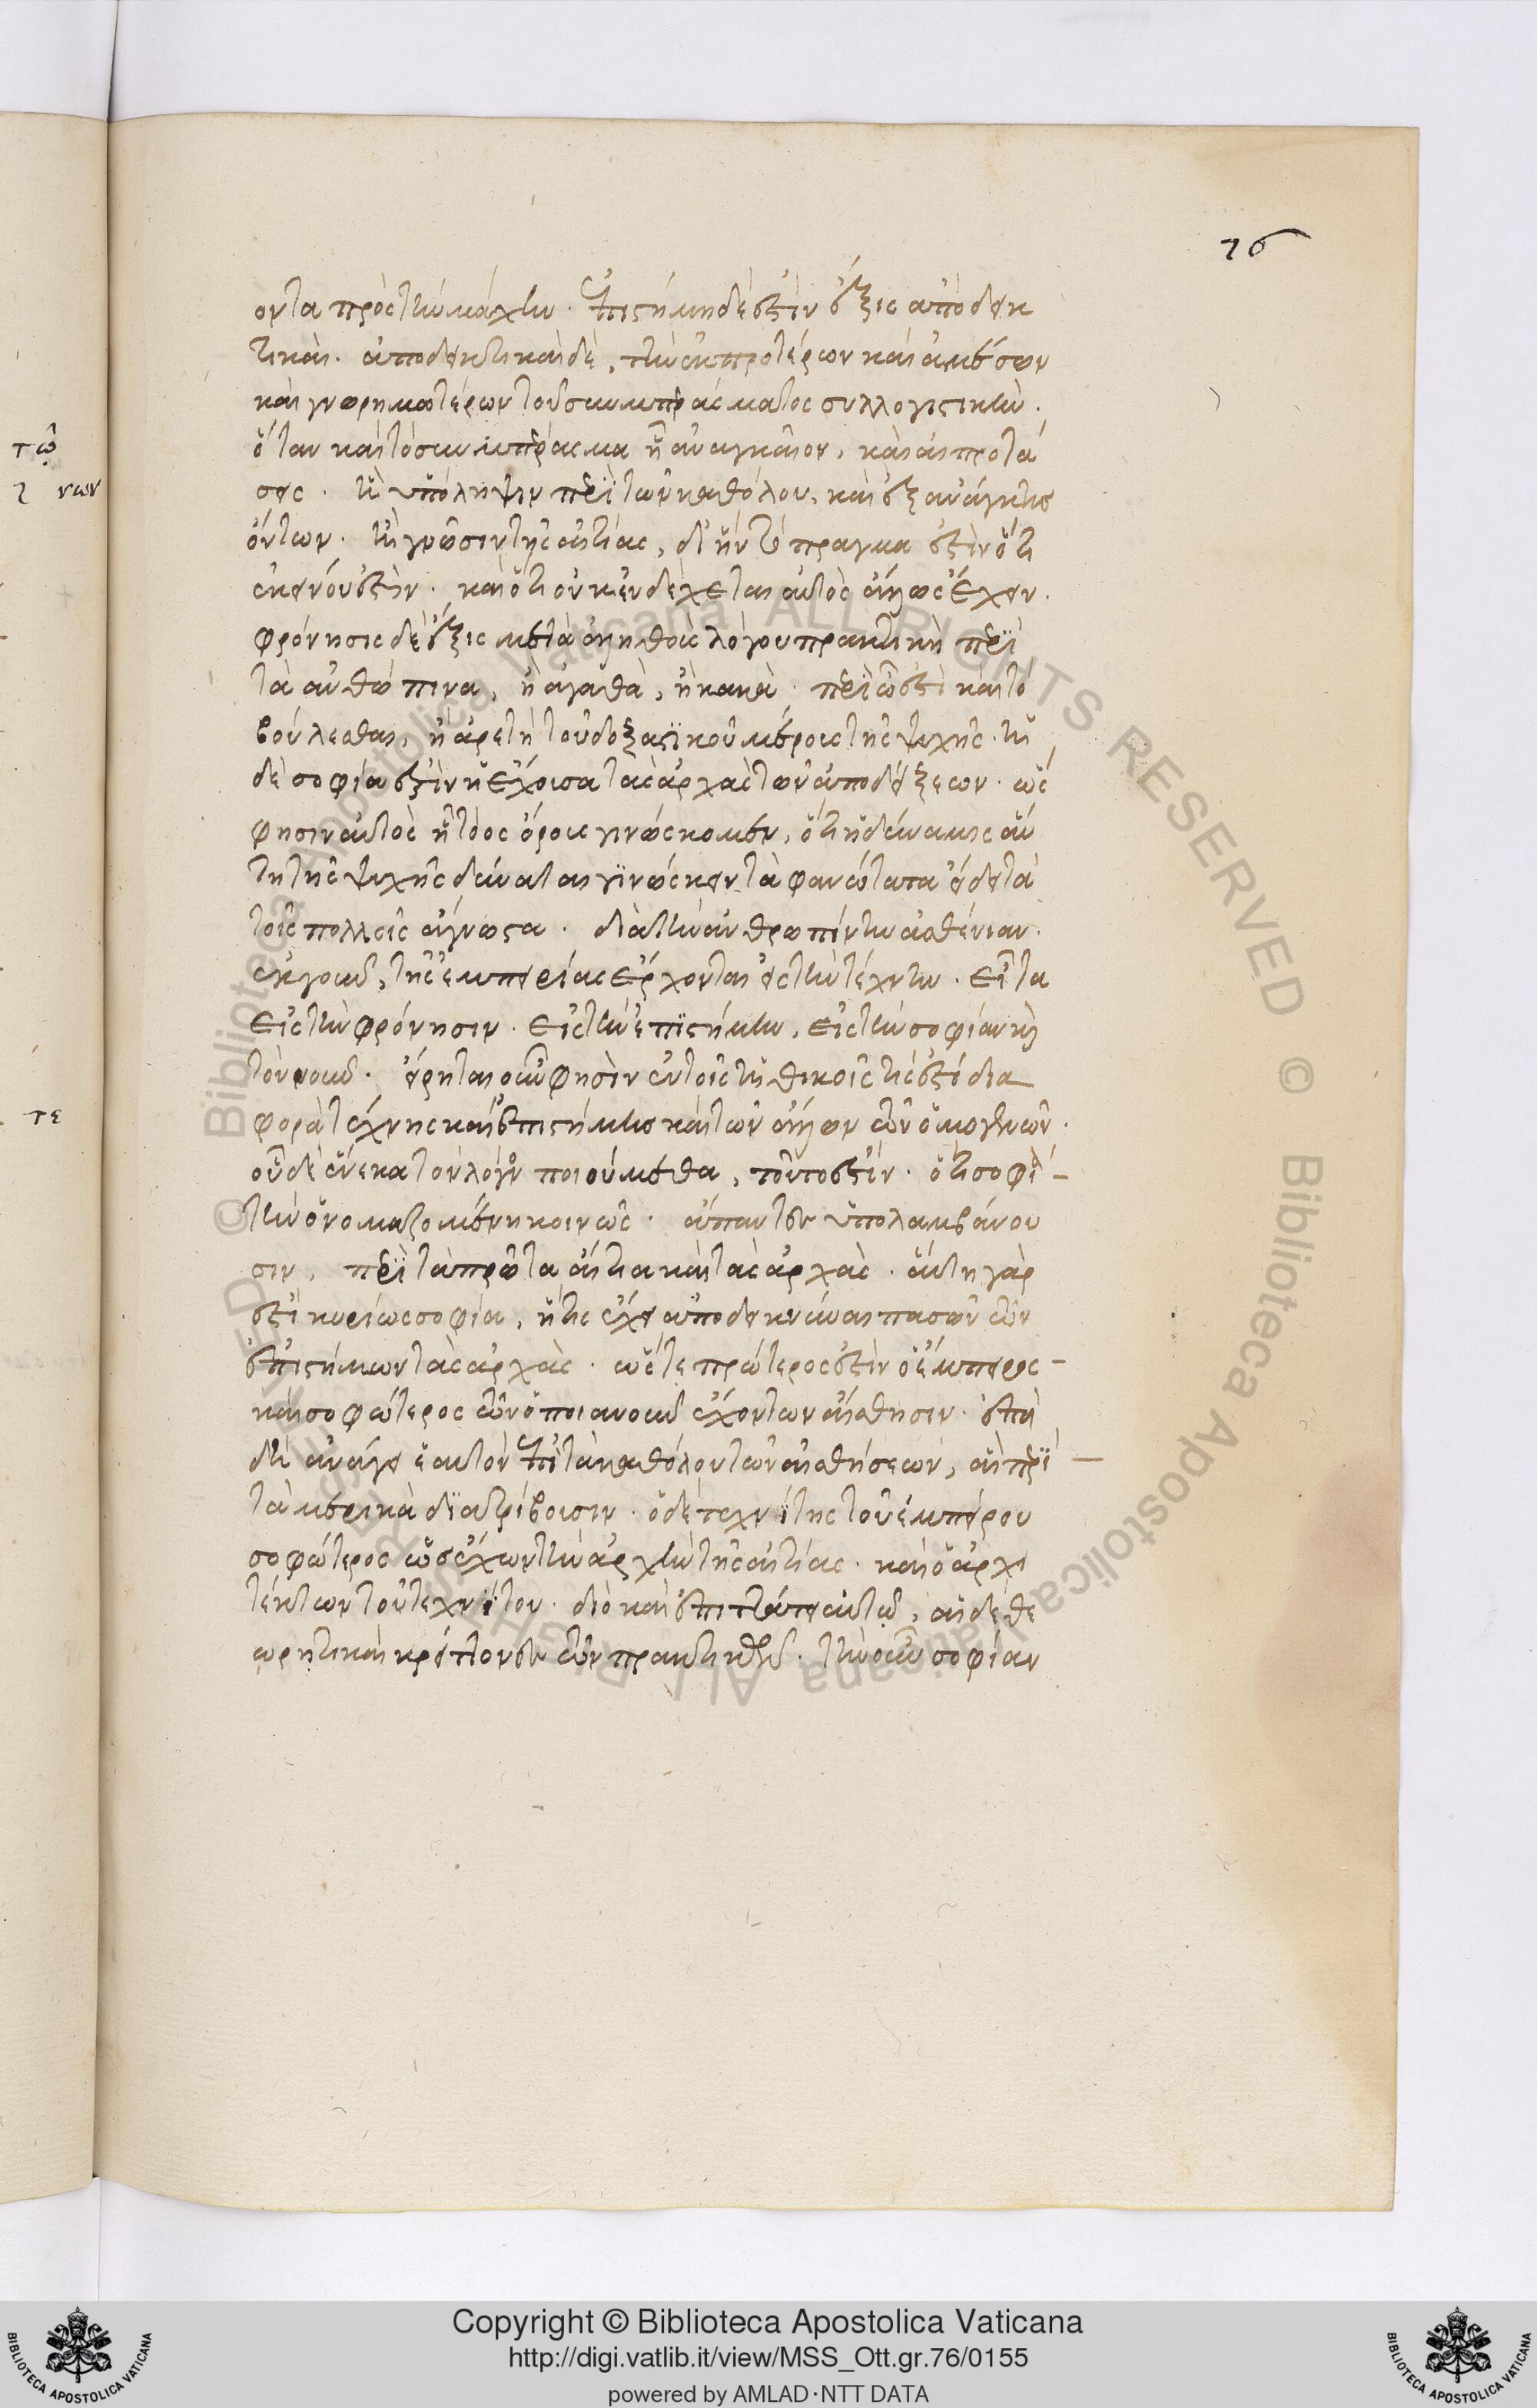 76
οντα πρὸς τὴν μάχην. ἐπιστήμη δέ ἐστιν ἕξις ἀποδεικ
τικὴ. ἀποδεικτικὴ δὲ, τὴν ἐκ προτέρων καὶ ἀμέσων
καὶ γνωριμωτέρων τοῦ συμπεράσματος συλλογιστικὴν.
ὅταν καὶ τὸ συμπέρασμα ἦ ἀναγκαῖον, καὶ αἱ προτά
σεις. ἢ ὑπόληψιν περὶ τῶν καθόλου, καὶ ἐξ ἀνάγκης
ὄντων. ἢ γνῶσιν τῆς αἰτίας, δι' ἣν τὸ πραγμα ἐστὶν ὅτι
ἐκείνου ἐστὶν. καὶ ὅτι οὐκ ἐνδέχεται αὐτὸς ἄλλως ἔχειν.
φρόνησις δὲ ἕξις μετὰ ἀληθοῦς λόγου πρακτικὴ περὶ
τὰ ἀνθώπινα, ἢ ἀγαθὰ, ἢ κακὰ. περὶ ὧ ἐστὶ καὶ τὸ
βούλεσθαι, ἢ ἀρετὴ τοῦ δοξαστικοῦ μέρους τῆς ψυχῆς. ἡ
δὲ σοφία ἐστὶν ἡ ἔχουσα τὰς ἀρχὰς τῶν ἀποδείξεων. ὥς
φησιν αὐτὸς ἢ τοὺς ὅρους γινώσκομεν, ὅτι ἡ δύναμις αὕ
τη τῆς ψυχῆς δύναται γινώσκειν τὰ φανώτατα εἴδει τὰ
τοῖς πολλοῖς ἄγνωστα. διὰ τὴν ἀνθρωπίνην ἀσθένειαν.
ἐκ γοῦν, τῆς ἐμπειρίας ἔρχονται εἰς τὴν τέχνην. εἶτα
εἰς τὴν φρόνησιν. εἰς τὴν ἐπιστήμην, εἰς τὴν σοφίαν κὶ
τὸν νοῦν. εἴρηται οὖν φησὶν ἐν τοῖς ἠθικοῖς τίς ἐστὶ δια
φορὰ τέχνης καὶ ἐπιστήμης καὶ τῶν ἄλλων τῶν ὁμογενῶν.
οὗ δὲ ἕνεκα τὸν λόγον ποιούμεθα, τοῦτο ἐστὶν. ὅτι σοφὶ –
τὴν ὀνομαζομένη κοινῶς. ἅπαντες ὑπολαμβάνου
σιν, περὶ τὰ πρῶτα αἴτια καὶ τὰς ἀρχὰς. αὕτη γὰρ
ἐστὶ κυρίως σοφία, ἥτις ἔχει ἀποδεικνύναι πασῶν τῶν
ἐπιστήμων τὰς ἀρχὰς. ὥστε πρώτερος ἐστὶν ὁ ἔμπειρος –
καὶ σοφώτερος τῶν ὁποιανοῦν ἐχόντων αἴσθησιν. ἐπεὶ
δὴ ἀνάγει ἑαυτὸν ἐπὶ τὰ καθόλου τῶν αἰσθήσεων, αἳ περὶ –
τὰ μερικὰ διατρίβουσιν. ὁ δὲ τεχνίτης τοῦ ἐμπείρου
σοφώτερος ὡς ἔχων τὴν ἀρχὴν τῆς αἰτίας. καὶ ὁ ἀρχι
τέκτων τοῦ τεχνίτου. διὸ καὶ ἐπιτάττει αὐτῷ, αἱ δὲ θε
ωρητικαὶ κρείττονες τῶν πρακτικῶν. τὴν οὖν σοφίαν
τῶ
νων
τε
Copyright © Biblioteca Apostolica Vaticana
http://digi.vatlib.it/view/MSS_Ott.gr.76/0155
powered by AMLAD·NTT DATA